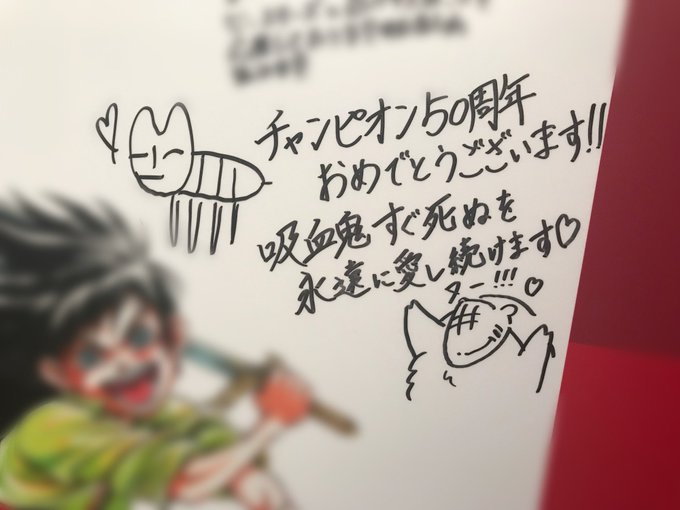 チャンピオン50周年
おめでとうございます!!
吸血鬼すぐ死ぬを
永遠に愛し続けます♡
ター!!!♡